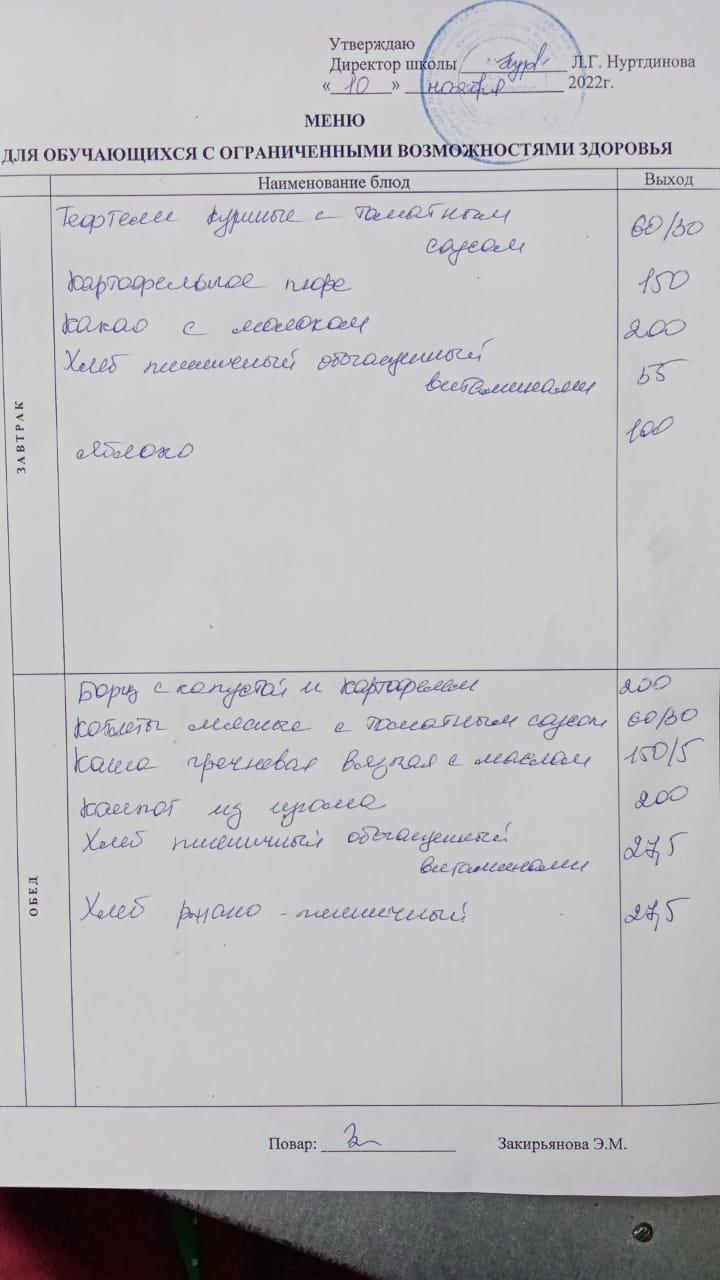 Утверждаю
Директор школы Л.Г. Нуртдинова
« 10 » ноября 2022г.
МЕНЮ
ДЛЯ ОБУЧАЮЩИХСЯ С ОГРАНИЧЕННЫМИ ВОЗМОЖНОСТЯМИ ЗДОРОВЬЯ
Наименование блюд Выход
ЗАВТРАК
Тефтели куриные с томатным
соусом 60/30
Картофельное пюре 150
Какао с молоком 200
Хлеб пшеничный обогащенный
витаминами 55
Яблоко 100
ОБЕД
Борщ с капустой и картофелем 200
Котлеты мясные с томатным соусом 60/30
Каша гречневая вязкая с маслом 150/5
Компот из изюма 200
Хлеб пшеничный обогащенный
витаминами 27,5
Хлеб ржано-пшеничный 27,5
Повар: Закирьянова Э.М.